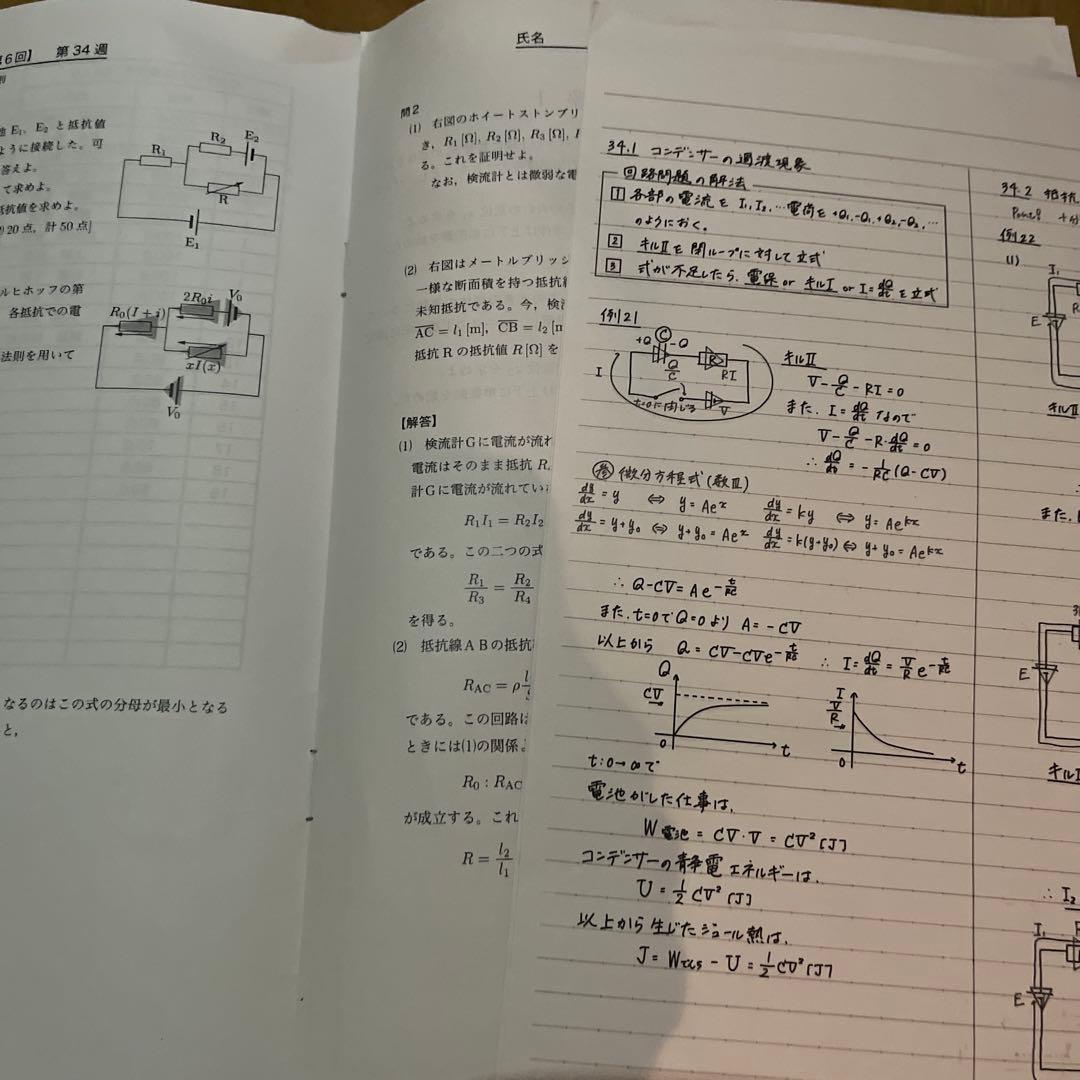 6回】 第34週
E₁, E₂ と抵抗値
ように接続した。可
答えよ。
て求めよ。
抵抗値を求めよ。
20点, 計50点]
R₁
R₂
E₂
R
E₁
ルヒホッフの第
各抵抗での電
法則を用いて
R₀(I+i)
2R₀i
V₀
xI(x)
V₀
なるのはこの式の分母が最小となる
と,
氏名
問2
(1) 右図のホイートストンブリ
き, R₁[Ω], R₂[Ω], R₃[Ω],
る。これを証明せよ。
なお, 検流計とは微弱な電
(2) 右図はメートルブリッジ
一様な断面積を持つ抵抗
未知抵抗である。今, 検
AC = l₁[m], CB = l₂[m
抵抗Rの抵抗値 R[Ω] を
【解答】
(1) 検流計Gに電流が流れ
電流はそのまま抵抗 R
計Gに電流が流れてい
R₁I₁ = R₂I₂
である。この二つの式
R₁/R₃ = R₂/R₄
を得る。
(2) 抵抗線ABの抵抗
R_AC = ρ
である。この回路は
ときには(1)の関係
R₀ : R_AC
が成立する。これ
R = l₂/l₁
34.1 コンデンサーの過渡現象
回路問題の解法
1 各部の電流を I₁, I₂, … 電荷を +Q₁, -Q₁, +Q₂, -Q₂, …
のようにおく。
2 キルⅡを閉ループに対して立式
3 式が不足したら、電保 or キルⅠ or I = dQ/dt を立式
例21
C
+Q -Q
Q/C
R
RI
I
t=0に閉じる
V
キルⅡ
V - Q/C - RI = 0
また、I = dQ/dt なので
V - Q/C - R・dQ/dt = 0
∴ dQ/dt = -1/RC (Q - CV)
参 微分方程式(数Ⅲ)
dy/dx = y ⇔ y = Ae^x dy/dx = ky ⇔ y = Ae^kx
dy/dx = y + y₀ ⇔ y + y₀ = Ae^x dy/dx = k(y + y₀) ⇔ y + y₀ = Ae^kx
∴ Q - CV = Ae^(-t/RC)
また、t=0でQ=0より A = -CV
以上から Q = CV - CVe^(-t/RC) ∴ I = dQ/dt = V/R e^(-t/RC)
Q
CV
0
t
I
V/R
0
t
t:0→∞で
電池がした仕事は、
W電池 = CV・V = CV² [J]
コンデンサーの静電エネルギーは、
U = 1/2 CV² [J]
以上から生じたジュール熱は、
J = W電池 - U = 1/2 CV² [J]
34.2 抵抗
例22
(1)
I₁
E
キルⅡ
また、
E
キルⅡ
∴ I₂
I₁
E